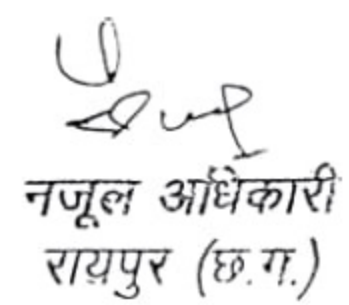 नजूल अधिकारी
रायपुर (छ.ग.)